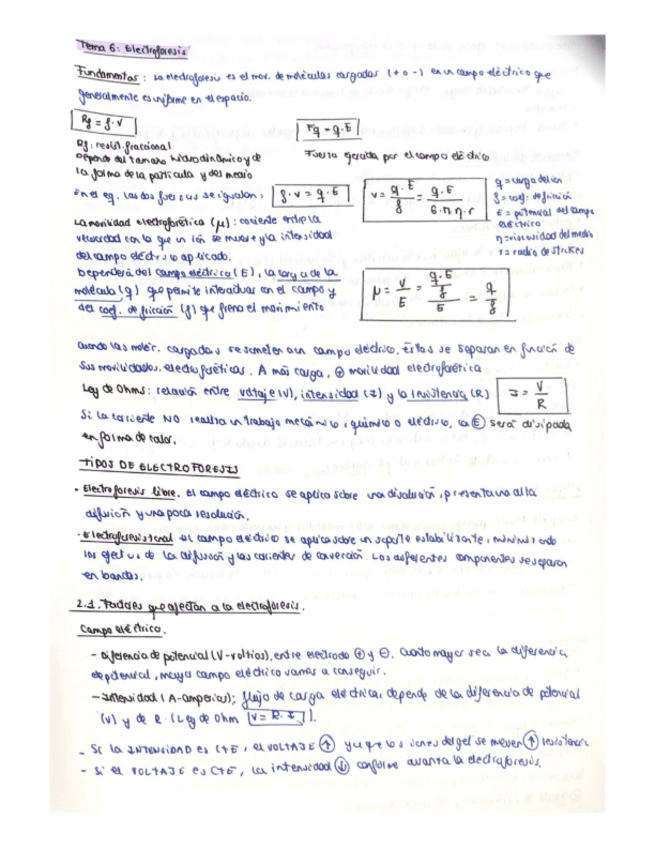 Tema 6: Electroforesis
Fundamentos: La electroforesis es el mov. de moléculas cargadas (+ o -) en un campo eléctrico que
generalmente es uniforme en el espacio.
Rf = f · V
Fq = q · E
Rf: resist. friccional
Depende del tamaño hidrodinámico y de
la forma de la partícula y del medio
Fuerza generada por el campo eléctrico
En el eq. las dos fuerzas se igualan:
f · v = q · E
v = q · E / f = q · E / 6 · π · η · r
q = carga del ion
f = coef. de fricción
E = potencial del campo
eléctrico
η = viscosidad del medio
r = radio de Stokes
La movilidad electroforética (μ): cociente entre la
velocidad con la que un ión se mueve y la intensidad
del campo eléctrico aplicado.
Dependerá del campo eléctrico (E), la carga de la
molécula (q) que permite interactuar con el campo y
del coef. de fricción (f) que frena el movimiento
μ = V / E = q · E / f / E = q / f
Cuando las moléc. cargadas se someten a un campo eléctrico, éstas se separan en función de
sus movilidades electroforéticas. A más carga, ⊕ movilidad electroforética
Ley de Ohms: relación entre voltaje (V), intensidad (I) y la resistencia (R)
I = V / R
Si la corriente NO realiza un trabajo mecánico, químico o eléctrico, la E será disipada
en forma de calor.
TIPOS DE ELECTROFORESIS
- Electroforesis libre. El campo eléctrico se aplica sobre una disolución, presenta una alta
difusión y una poca resolución.
- Electroforesis zonal el campo eléctrico se aplica sobre un soporte estabilizante, minimizando
los efectos de la difusión y las corrientes de convección. Los diferentes componentes se separan
en bandas.
2.1. Factores que afectan a la electroforesis.
Campo eléctrico.
- Diferencia de potencial (V-voltios), entre electrodo ⊕ y ⊖. Cuanto mayor sea la diferencia
de potencial, mayor campo eléctrico vamos a conseguir.
- Intensidad (A-amperios); flujo de carga eléctrica, depende de la diferencia de potencial
(V) y de R. (Ley de Ohm V = R · I).
- Si la INTENSIDAD es CTE, el VOLTAJE ↑ ya que los iones del gel se mueven ↑ resistencia
- Si el VOLTAJE es CTE, la intensidad ↓ conforme avanza la electroforesis.